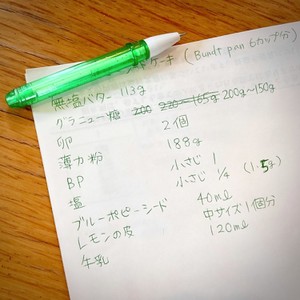 ケーキ (Bundt pan 6カップ分)
無塩バター 113g
グラニュー糖 200 220~165g 200g~150g
卵 2個
薄力粉 188g
BP 小さじ 1
塩 小さじ 1/4 (1.5g)
ブルーポピーシード 40ml
レモンの皮 中サイズ1個分
牛乳 120ml